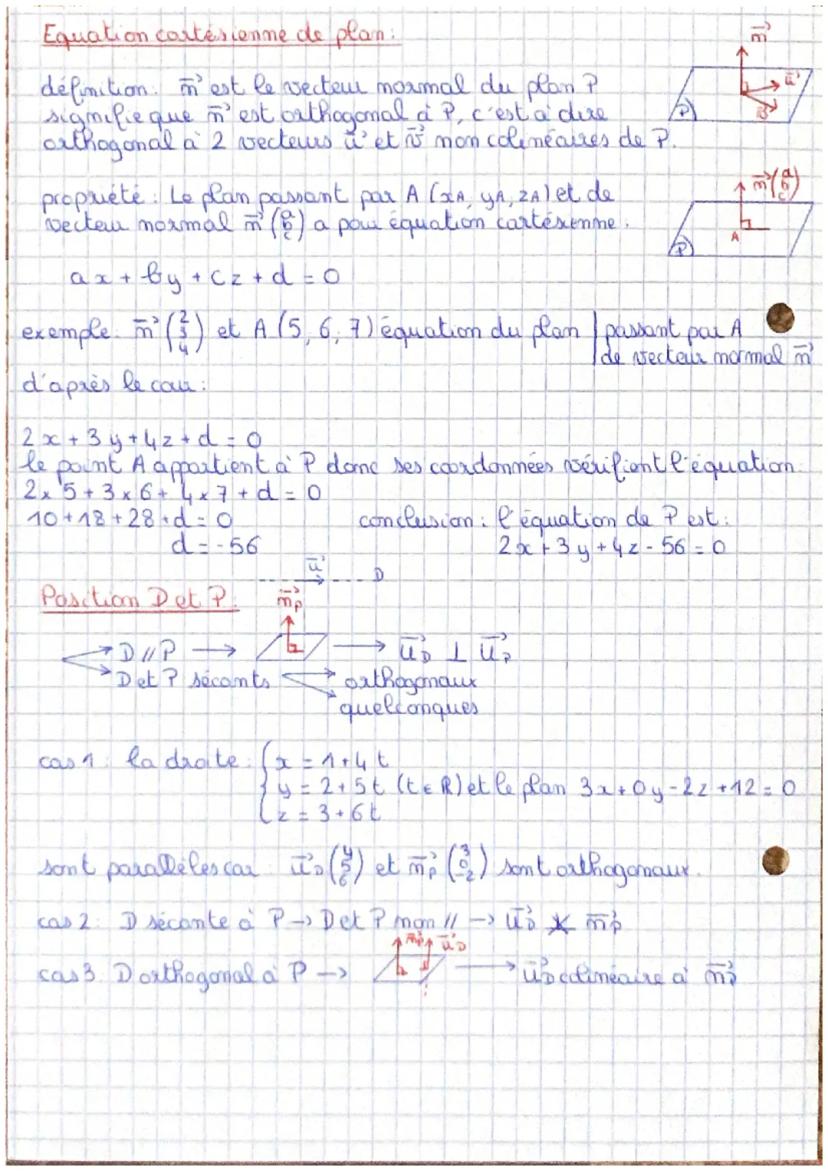 Equation cartésienne de plan :
n⃗
définition : n⃗ est le vecteur normal du plan P
signifie que n⃗ est orthogonal à P, c'est à dire
orthogonal à 2 vecteurs u⃗ et v⃗ non colinéaires de P.
u⃗
v⃗
P
propriété : Le plan passant par A (xA, yA, zA) et de
vecteur normal n⃗ (a b c) a pour équation cartésienne :
n⃗ (a b c)
A
P
ax + by + cz + d = 0
exemple : n⃗ (2 3 4) et A (5, 6, 7) équation du plan | passant par A
de vecteur normal n⃗
d'après le cour :
2x + 3y + 4z + d = 0
le point A appartient à P donc ses coordonnées vérifient l'équation.
2 × 5 + 3 × 6 + 4 × 7 + d = 0
10 + 18 + 28 + d = 0 conclusion : l'équation de P est :
d = -56 2x + 3y + 4z - 56 = 0
u⃗ D
Position D et P :
n⃗P
D // P → → u⃗D ⊥ u⃗P
D et P sécants orthogonaux
quelconques
cas 1 : la droite : { x = 1 + 4t
y = 2 + 5t (t ∈ R) et le plan 3x + 0y - 2z + 12 = 0
z = 3 + 6t
sont parallèles car u⃗D (4 5 6) et n⃗P (3 0 -2) sont orthogonaux.
cas 2 : D sécante à P → D et P non // → u⃗D ⊥̸ n⃗P
n⃗P u⃗D
cas 3 D orthogonal à P → → u⃗D colinéaire à n⃗P